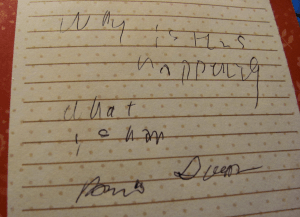 Why is this
happening
what
is hap